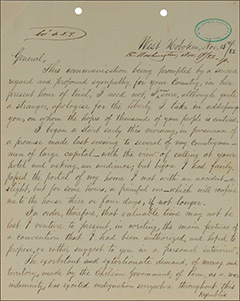 West Hoboken, Nov. 15th /82
General,
This communication being prompted by a sincere
regard and profound sympathy for your Country, in the
present hour of trial, I need not, I am sure, although quite
a stranger, apologise for the liberty I take in addressing
you, on whom the hopes of thousands of your people is centred.
I began a start early this morning, in pursuance of
a promise made last evening to several of my countrymen
men of large capital with the view of calling at your
hotel and asking an audience; but before I had fairly
passed the portal of my home I met with an accident - a
slight, but for some hours, a painful one - which will confine
me to the house three or four days, if not longer.
In order, therefore, that valuable time may not be
lost I venture to present, in writing, the main features of
a conversation that I had been authorized, and hoped to
propose, or rather suggest to you in a personal interview.
The exorbitant and extortionate demand, of money and
territory, made by the Chilian government, of Peru, as a war
indemnity, has excited indignation everywhere throughout this
Republic